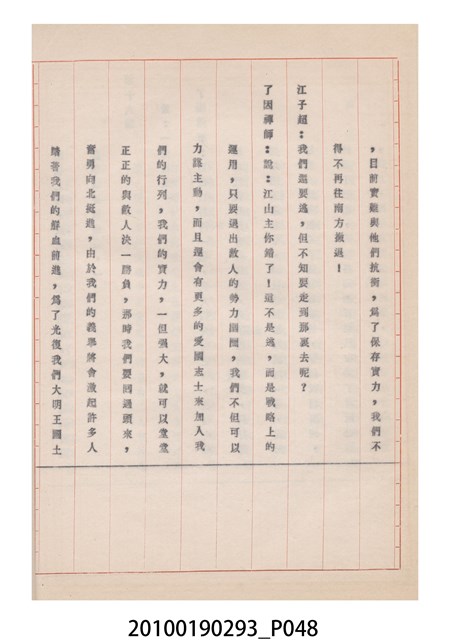 ，目前實難與他們抗衡，為了保存實力，我們不
得不再往南方撤退！
江子超：我們還要逃，但不知要走到那裏去呢？
了因禪師：說：江山主你錯了！這不是逃，而是戰略上的
運用，只要逃出敵人的勢力圈圈，我們不但可以
力謀主動，而且還會有更多的愛國志士來加入我
們的行列，我們的實力，一但強大，就可以堂堂
正正的與敵人決一勝負，那時我們要回過頭來，
奮勇向北挺進，由於我們的義舉將會激起許多人
踏著我們的鮮血前進，為了光復我們大明王國土
20100190293_P048